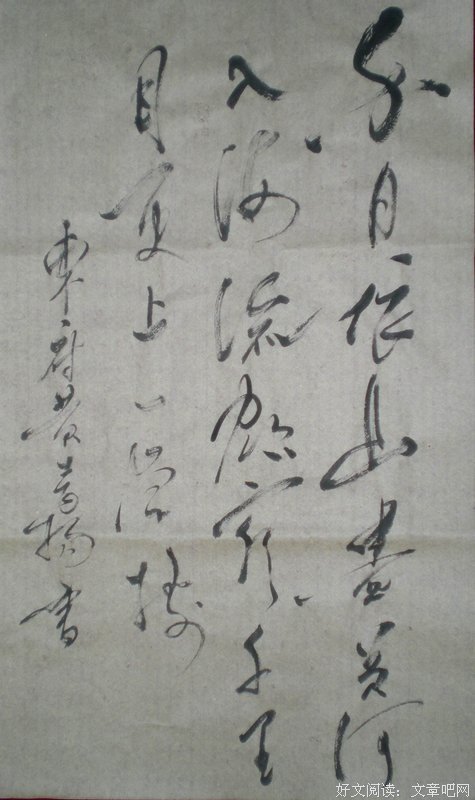 白日依山盡黃河
入海流欲窮千里
目更上一層樓
東府黃書
好文阅读：文章吧网